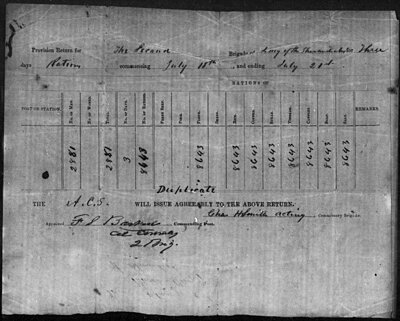 Provision Return for The Second Brigade Army of the Shenandoah for Three
days Rations commencing July 18th, and ending July 20th.
RATIONS OF
POST OR STATION. NO. OF MEN. NO. OF WOMEN. TOTAL. NO. OF DAYS. NO. OF RATIONS. FRESH BEEF. PORK. FLOUR. BEANS. RICE. COFFEE. SUGAR. VINEGAR. CANDLES. SOAP. SALT. REMARKS.
2881 2881 3 8643 8643 8643 8643 8643 8643 8643 8643 8643
Duplicate
THE A.C.S. WILL ISSUE AGREEABLY TO THE ABOVE RETURN.
Chs H Smith acting Commissary Brigade.
Approved F S Bartow Commanding Post.
Col Comdg
2 Brig.